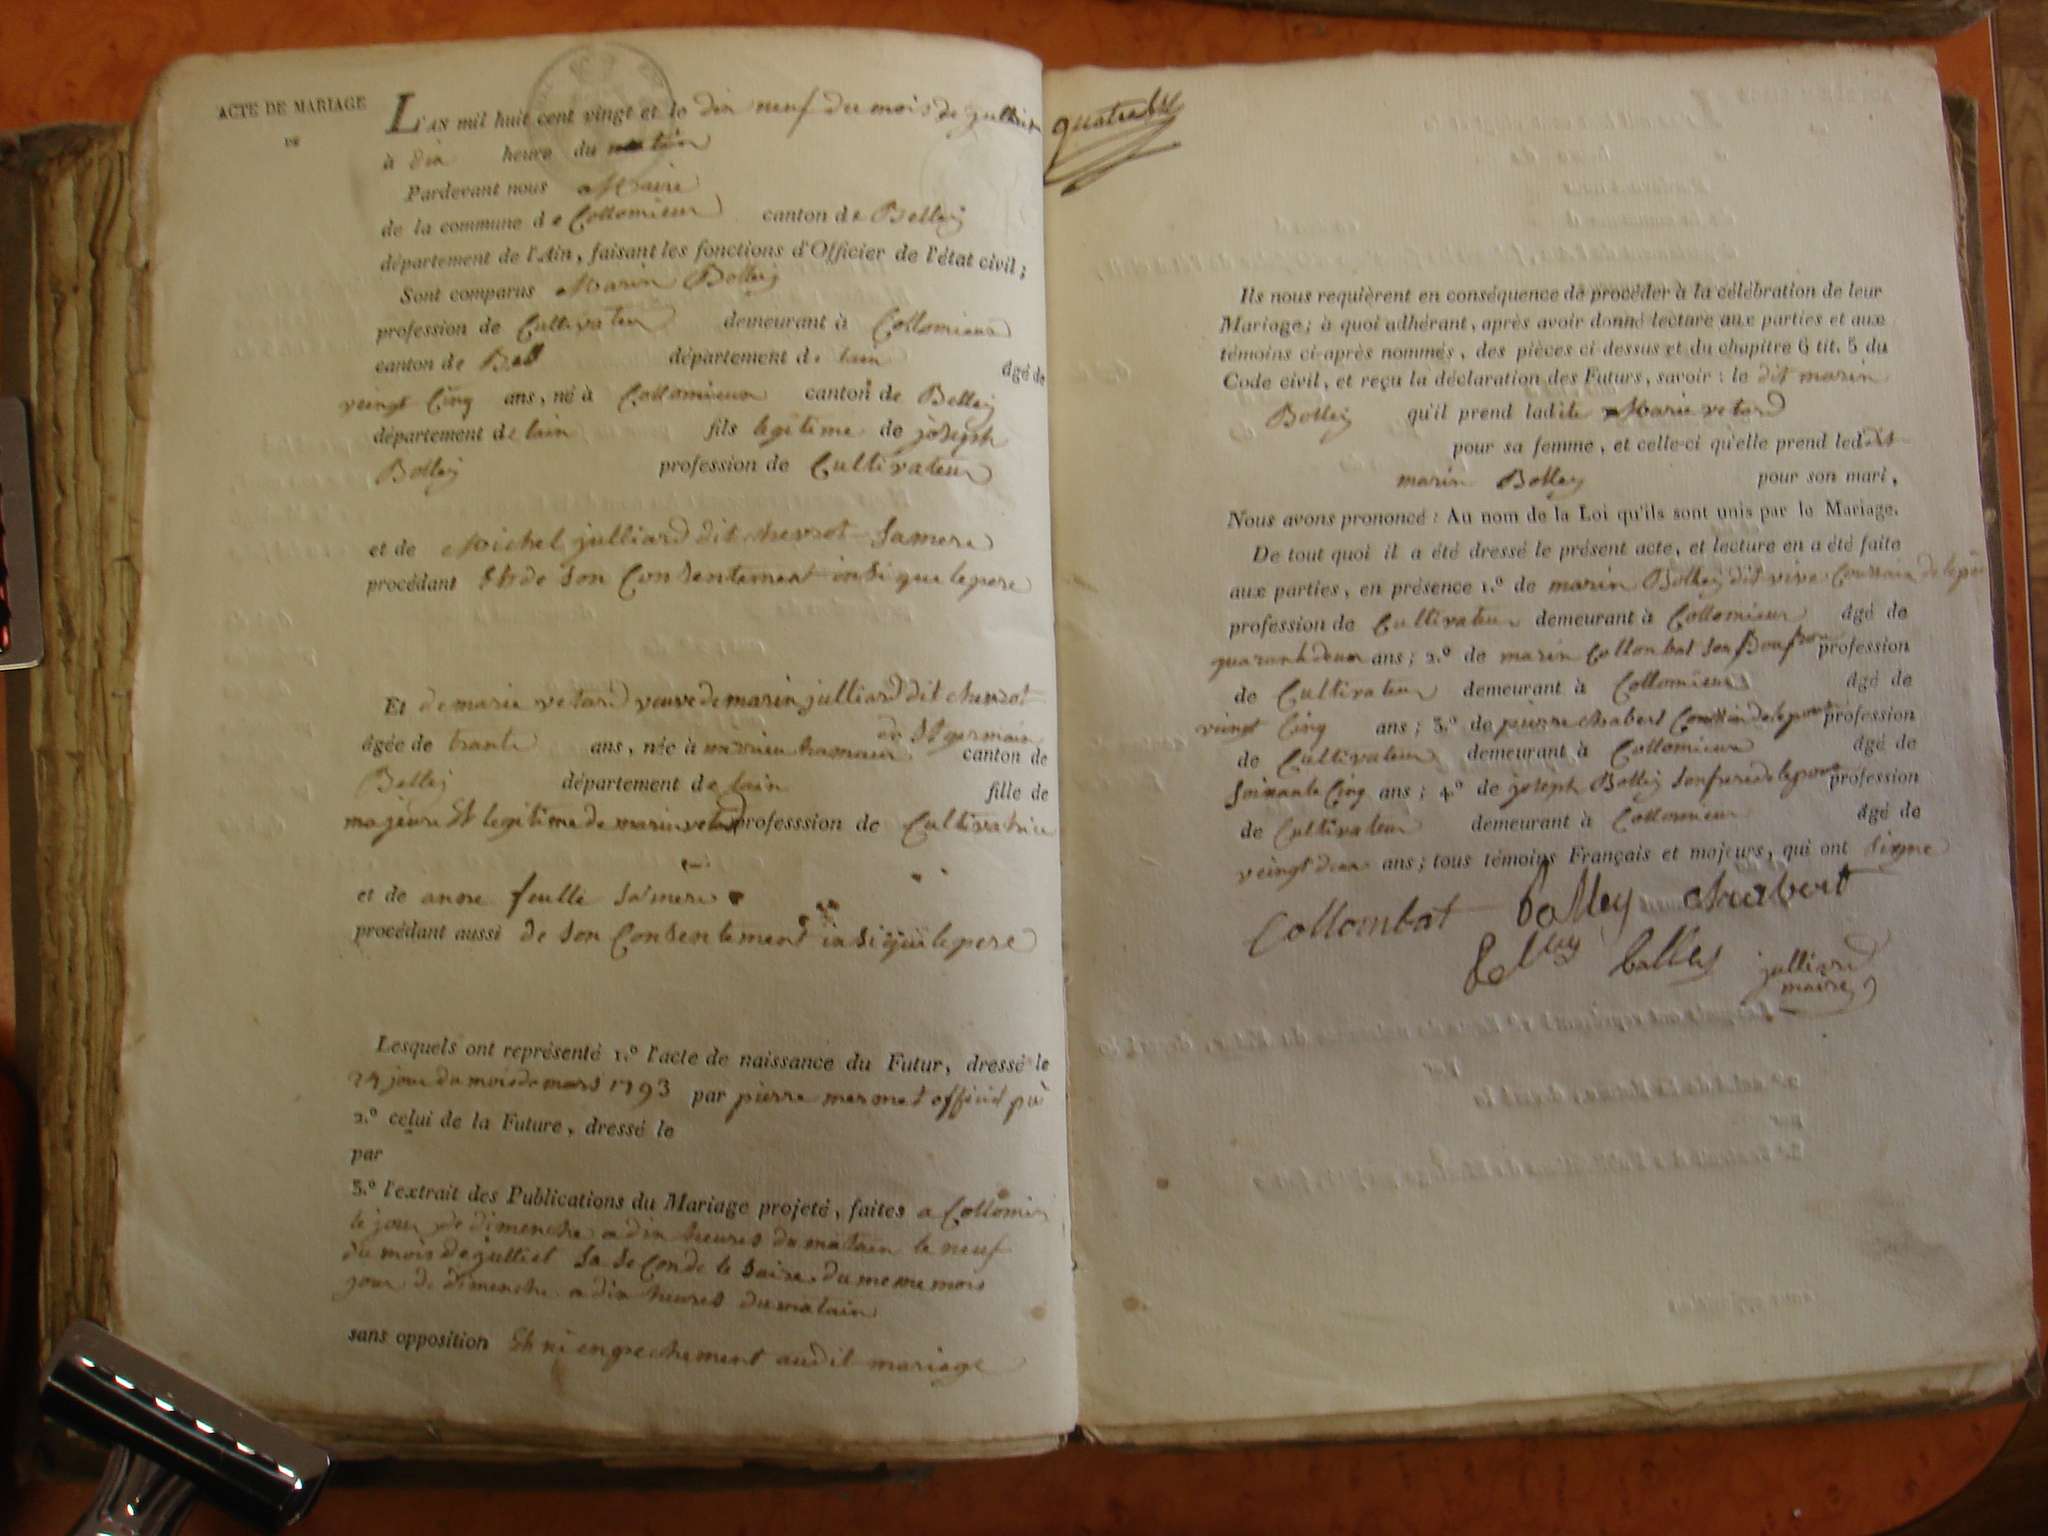 ACTE DE MARIAGE
DE
L'AN mil huit cent vingt et le dix neuf du mois de julliet
à dix heure du matin
Pardevant nous Maire
de la commune de Collomieux canton de Belley
département de l'Ain, faisant les fonctions d'Officier de l'état civil;
Sont comparus Marin Bolley
profession de Cultivateur demeurant à Collomieux
canton de Bell département de lain âgé de
veingt Cinq ans, né à Collomieux canton de Belley
département de lain fils legitime de joseph
Bolley profession de Cultivateur
et de Michel julliard dit chevrot Samere
procédant Et de Son Consentement insi que lepere
Et de marie vetard veuve de marin julliard dit chevrot
de St germain
âgée de trante ans, née à canton de
Belley département de lain fille de
majeure Et legitime de marin vetard professsion de Cultivatrice
et de feulle Samere
procédant aussi de Son Consentement insi que lepere
Lesquels ont représenté 1.º l'acte de naissance du Futur, dressé le
24 jour du mois de mars 1793 par pierre mermet officié
2.º celui de la Future, dressé le
par
3.º l'extrait des Publications du Mariage projeté, faites a Collomieu
le jour de dimenche a dix heures du matain le neuf
du mois de julliet la Seconde le Saize du meme mois
jour de dimenche a dix heures du matain
sans opposition Et ni enpechement audit mariage
Ils nous requièrent en conséquence de procéder à la célébration de leur
Mariage; à quoi adhérant, après avoir donné lecture aux parties et aux
témoins ci-après nommés, des pièces ci-dessus et du chapitre 6 tit. 5 du
Code civil, et reçu la déclaration des Futurs, savoir: le dit marin
Bolley qu'il prend ladite Marie vetard
pour sa femme, et celle-ci qu'elle prend ledit
marin Bolley pour son mari,
Nous avons prononcé: Au nom de la Loi qu'ils sont unis par le Mariage.
De tout quoi il a été dressé le présent acte, et lecture en a été faite
aux parties, en présence 1.º de marin Bolley dit vive Coussain de
profession de Cultivateur demeurant à Collomieux âgé de
quarante deux ans; 2.º de marin Collonbat Son Boufrere profession
de Cultivateur demeurant à Collomieux âgé de
veingt Cinq ans; 3.º de pierre chabert Coussin de profession
de Cultivateur demeurant à Collomieux âgé de
Soixante Cinq ans; 4.º de joseph Bolley Son frere de profession
de Cultivateur demeurant à Collomieux âgé de
veingt deux ans; tous témoins Français et majeurs, qui ont Signe
Collombat bolley chabert
bolley julliard
maire